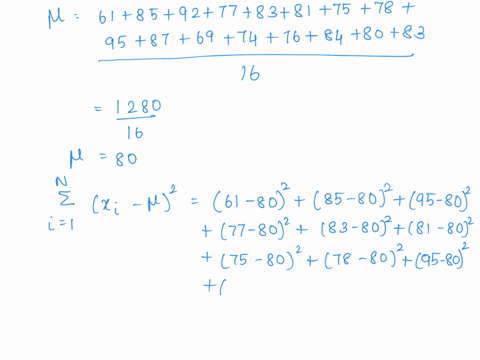 μ = 61 + 85 + 92 + 77 + 83 + 81 + 75 + 78 +
95 + 87 + 69 + 74 + 76 + 84 + 80 + 83
16
= 1280
16
μ = 80
N
Σ (xᵢ - μ)² = (61 - 80)² + (85 - 80)² + (95 - 80)²
i=1 + (77 - 80)² + (83 - 80)² + (81 - 80)²
+ (75 - 80)² + (78 - 80)² + (95 - 80)²
+ (